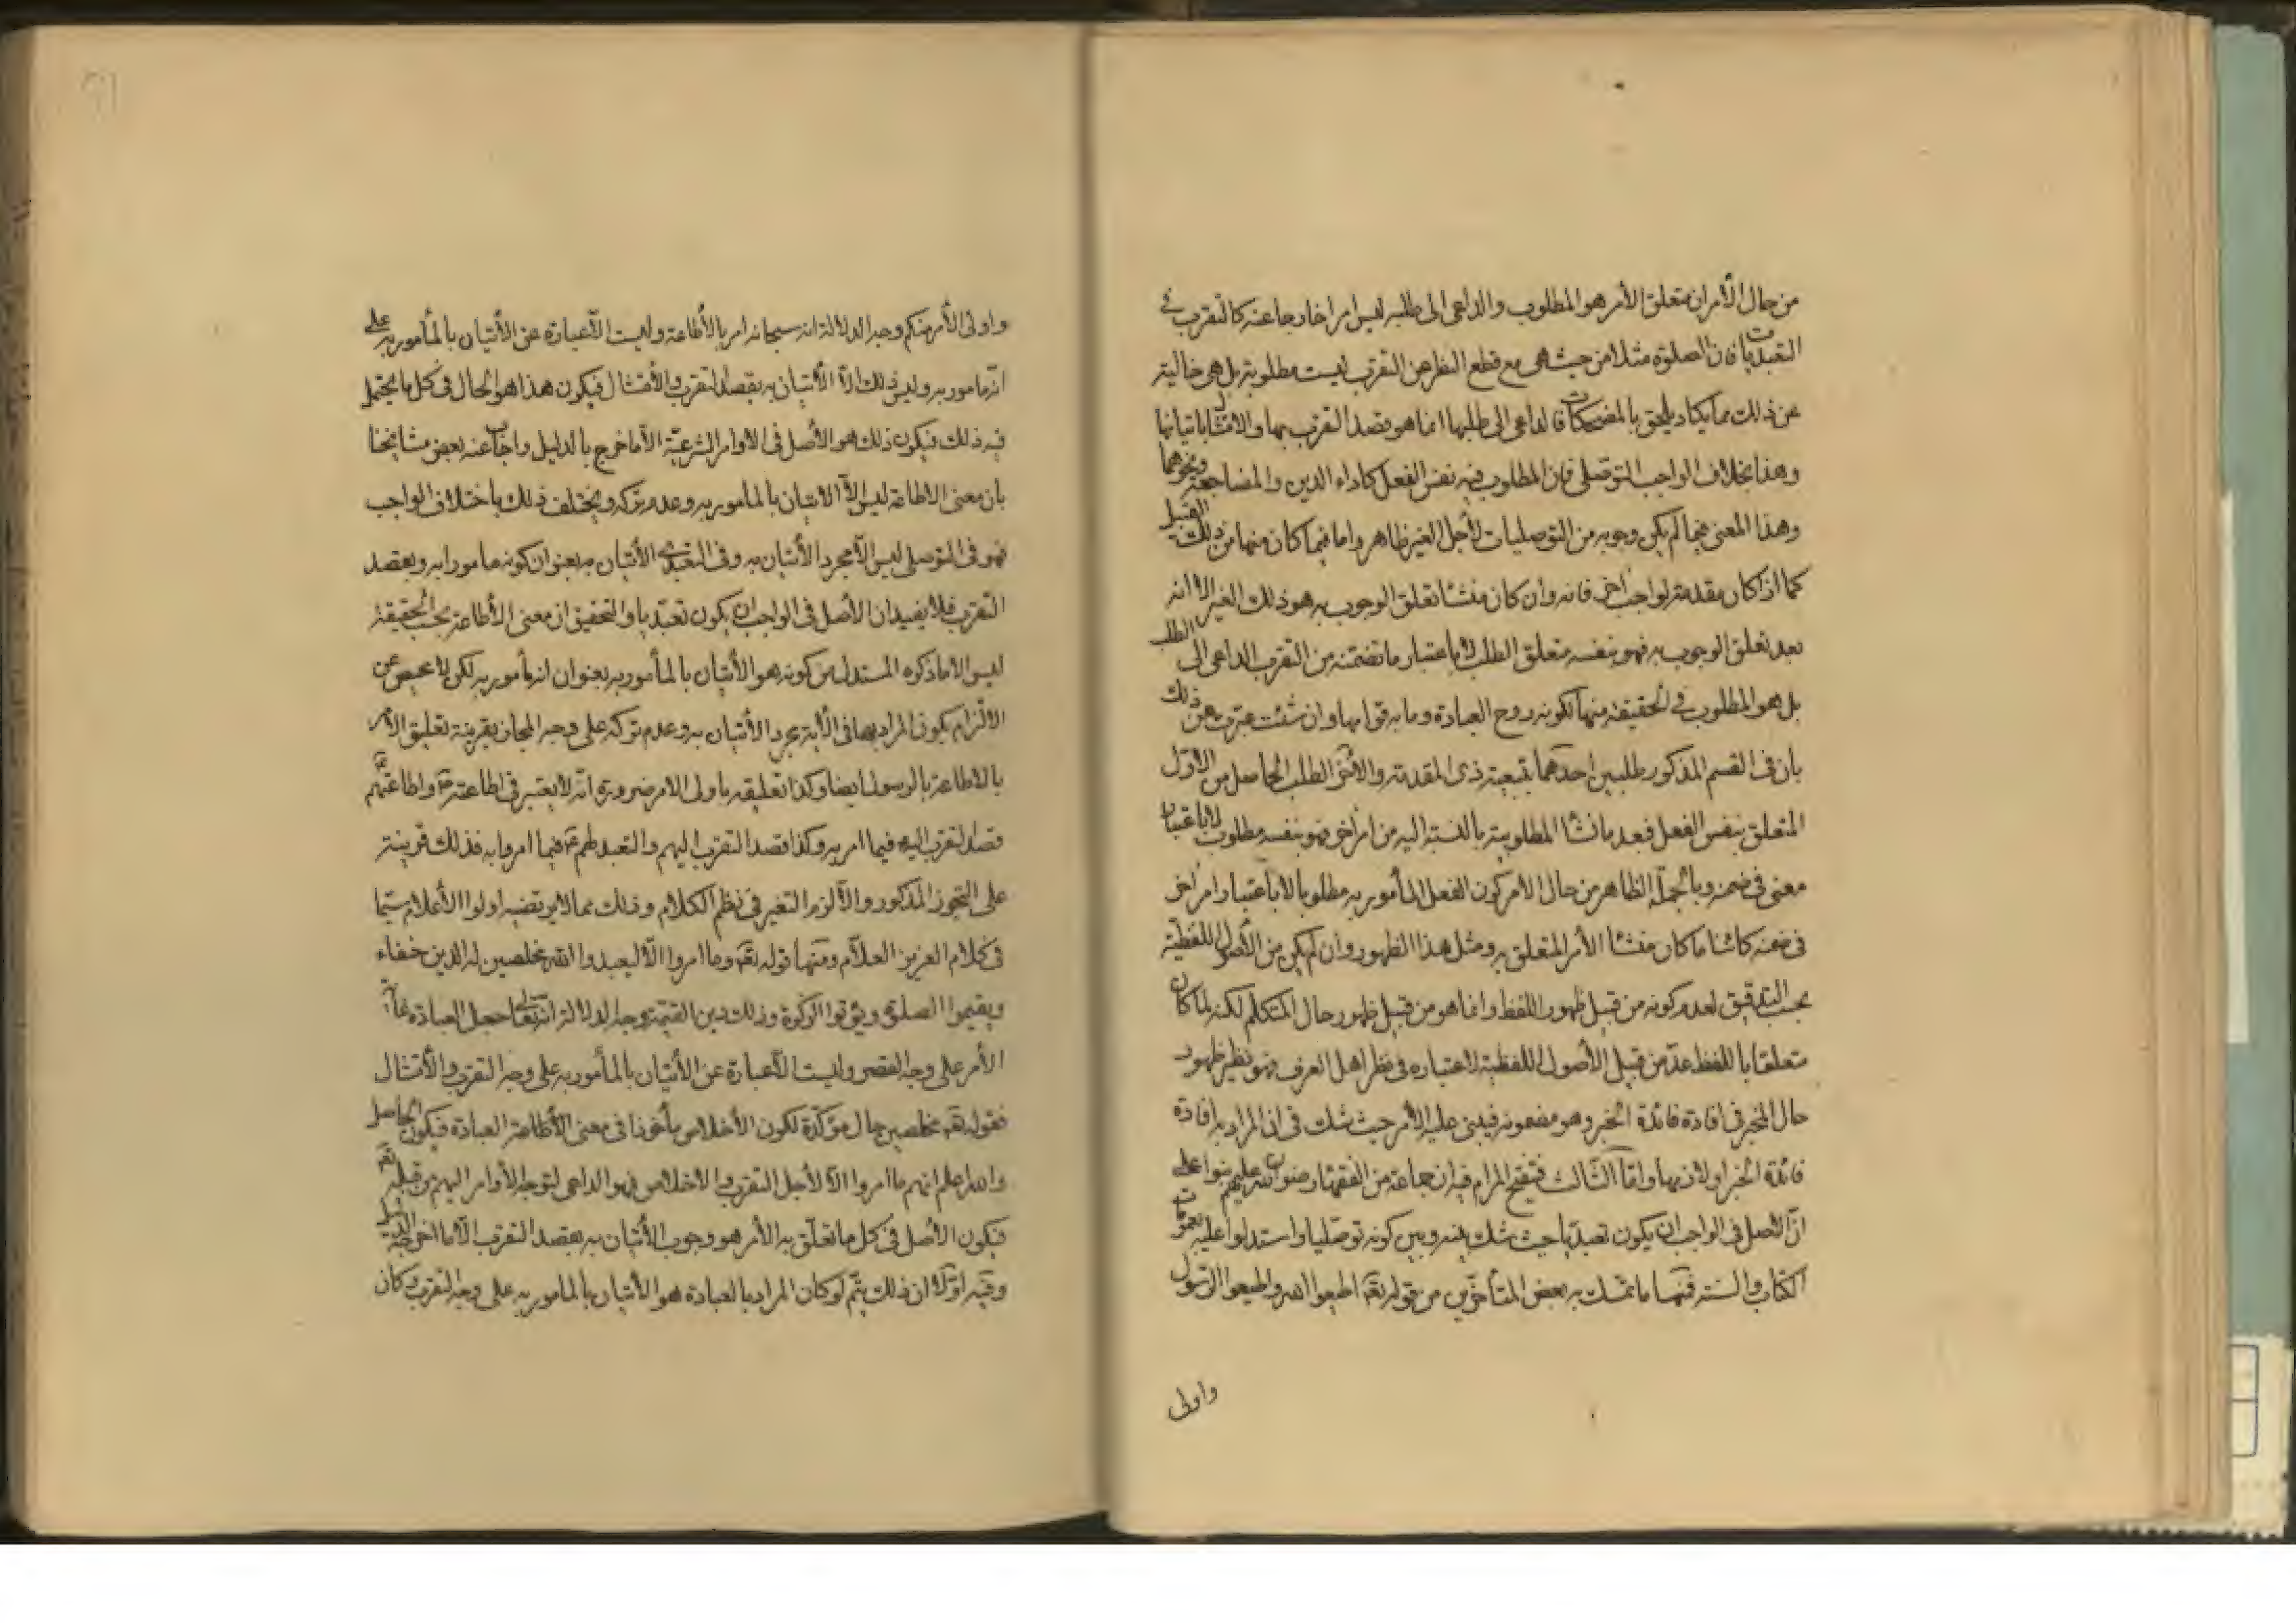 من حال الآمر ان متعلق الأمر هو المطلوب والداعي الى طلبه ليس امرا خارجا عنه كالتقرب في
التعبديات فان الصلوة مثلا من حيث هي مع قطع النظر عن التقرب ليست مطلوبة بل هي خالية
عن ذلك مما يكاد يلحق بالمضحكات فالداعي الى طلبها انما هو قصد التقرب بها والامتثال باتيانها
وهذا بخلاف الواجب التوصلي فان المطلوب فيه نفس الفعل كاداء الدين والمضاجعة ونحوهما
وهذا المعنى فيما لم يكن وجوبه من التوصليات لأجل الغير ظاهر واما فيما كان منها من ذلك القبيل
كما اذا كان مقدمة لواجب اخر فانه وان كان منشأ تعلق الوجوب به هو ذلك الغير الا انه
بعد تعلق الوجوب به فهو بنفسه متعلق الطلب لا باعتبار ما تضمنه من التقرب الداعي الى الطلب
بل هو المطلوب في الحقيقة منها لكونه روح العبادة وما به قوامها وان شئت عبرت عن ذلك
بان في القسم المذكور طلبين احدهما بتبعية ذي المقدمة والاخر الطلب الحاصل من الاول
المتعلق بنفس الفعل فبعد ما نشأ المطلوبية بالنسبة اليه من امر اخر فهو بنفسه مطلوب لا باعتبار
معنى في ضمنه وبالجملة الظاهر من حال الامر كون الفعل المأمور به مطلوبا لا باعتبار امر اخر
في ضمنه كائنا ما كان منشأ الأمر المتعلق به ومثل هذا الظهور وان لم يكن من الأصول اللفظية
بحسب التدقيق لعدم كونه من قبيل ظهور اللفظ وانما هو من قبيل ظهور حال المتكلم لكنه لما كان
متعلقا باللفظ عد من قبيل الأصول اللفظية لاعتباره في نظر اهل العرف فهو نظير ظهور
حال المخبر في افادة فائدة الخبر وهو مضمونه فيبنى عليه الأمر حيث شك في ان المراد به افادة
فائدة الخبر او لازمها واما الثالث فتنقيح المرام فيه ان جماعة من الفقهاء رضوان الله عليهم بنوا على
ان الأصل في الواجب ان يكون تعبديا حيث شك بينه وبين كونه توصليا واستدلوا عليه بعمومات
الكتاب والسنة فمنها ما تمسك به بعض المتأخرين من قوله تعه اطيعوا الله واطيعوا الرسول
واولى
واولى الأمر منكم وجه الدلالة انه سبحانه امر بالأطاعة وليست الا عبارة عن الأتيان بالمأمور به على
انه مأمور به وليس ذلك الا الأتيان به بقصد التقرب والأمتثال فيكون هذا هو الحال في كل ما يحتمل
فيه ذلك فيكون ذلك هو الأصل في الاوامر الشرعية الا ما خرج بالدليل واجاب عنه بعض مشايخنا
بان معنى الاطاعة ليس الا الاتيان بالمأمور به وعدم تركه ويختلف ذلك باختلاف الواجب
فهو في التوصلي ليس الا مجرد الأتيان به وفي التعبدي الأتيان به بعنوان كونه مامورا به وبقصد
التقرب فلا يفيد ان الأصل في الواجب ان يكون تعبديا والتحقيق ان معنى الأطاعة بحسب الحقيقة
ليس الا ما ذكره المستدل من كونه هو الأتيان بالمأمور به بعنوان انه مأمور به لكن لا محيص عن
الالتزام بكون المراد بها في الأية مجرد الأتيان به وعدم تركه على وجه المجاز بقرينة تعليق الأمر
بالاطاعة بالرسول ايضا وكذا تعليقه باولى الامر ضرورة انه لا يعتبر في اطاعته واطاعتهم
قصد التقرب اليه فيما امر به وكذا قصد التقرب اليهم والتعبد لهم فيما امروا به فذلك قرينة
على التجوز المذكور والا لزم التغير في نظم الكلام وذلك مما لا يرتضيه اولوا الأعلام سيما
في كلام العزيز العلام ومنها قوله تعه وما امروا الا ليعبدوا الله مخلصين له الدين حنفاء
ويقيموا الصلوة ويؤتوا الزكوة وذلك دين القيمة وجه الدلالة انه تعالى جعل العبادة غاية
الأمر على وجه القصر وليست الا عبارة عن الأتيان بالمأمور به على وجه التقرب والأمتثال
فقوله تعه مخلصين حال مؤكدة لكون الأخلاص مأخوذا في معنى الأطاعة العبادة فيكون الحاصل
والله اعلم انهم ما امروا الا لأجل التقرب والاخلاص فهو الداعي لتوجه الأوامر اليهم من قبله تعه
فيكون الأصل في كل ما تعلق به الأمر هو وجوب الأتيان به بقصد التقرب الا ما اخرجه الدليل
وفيه اولا ان ذلك يتم لو كان المراد بالعبادة هو الأتيان بالمأمور به على وجه التقرب وكان